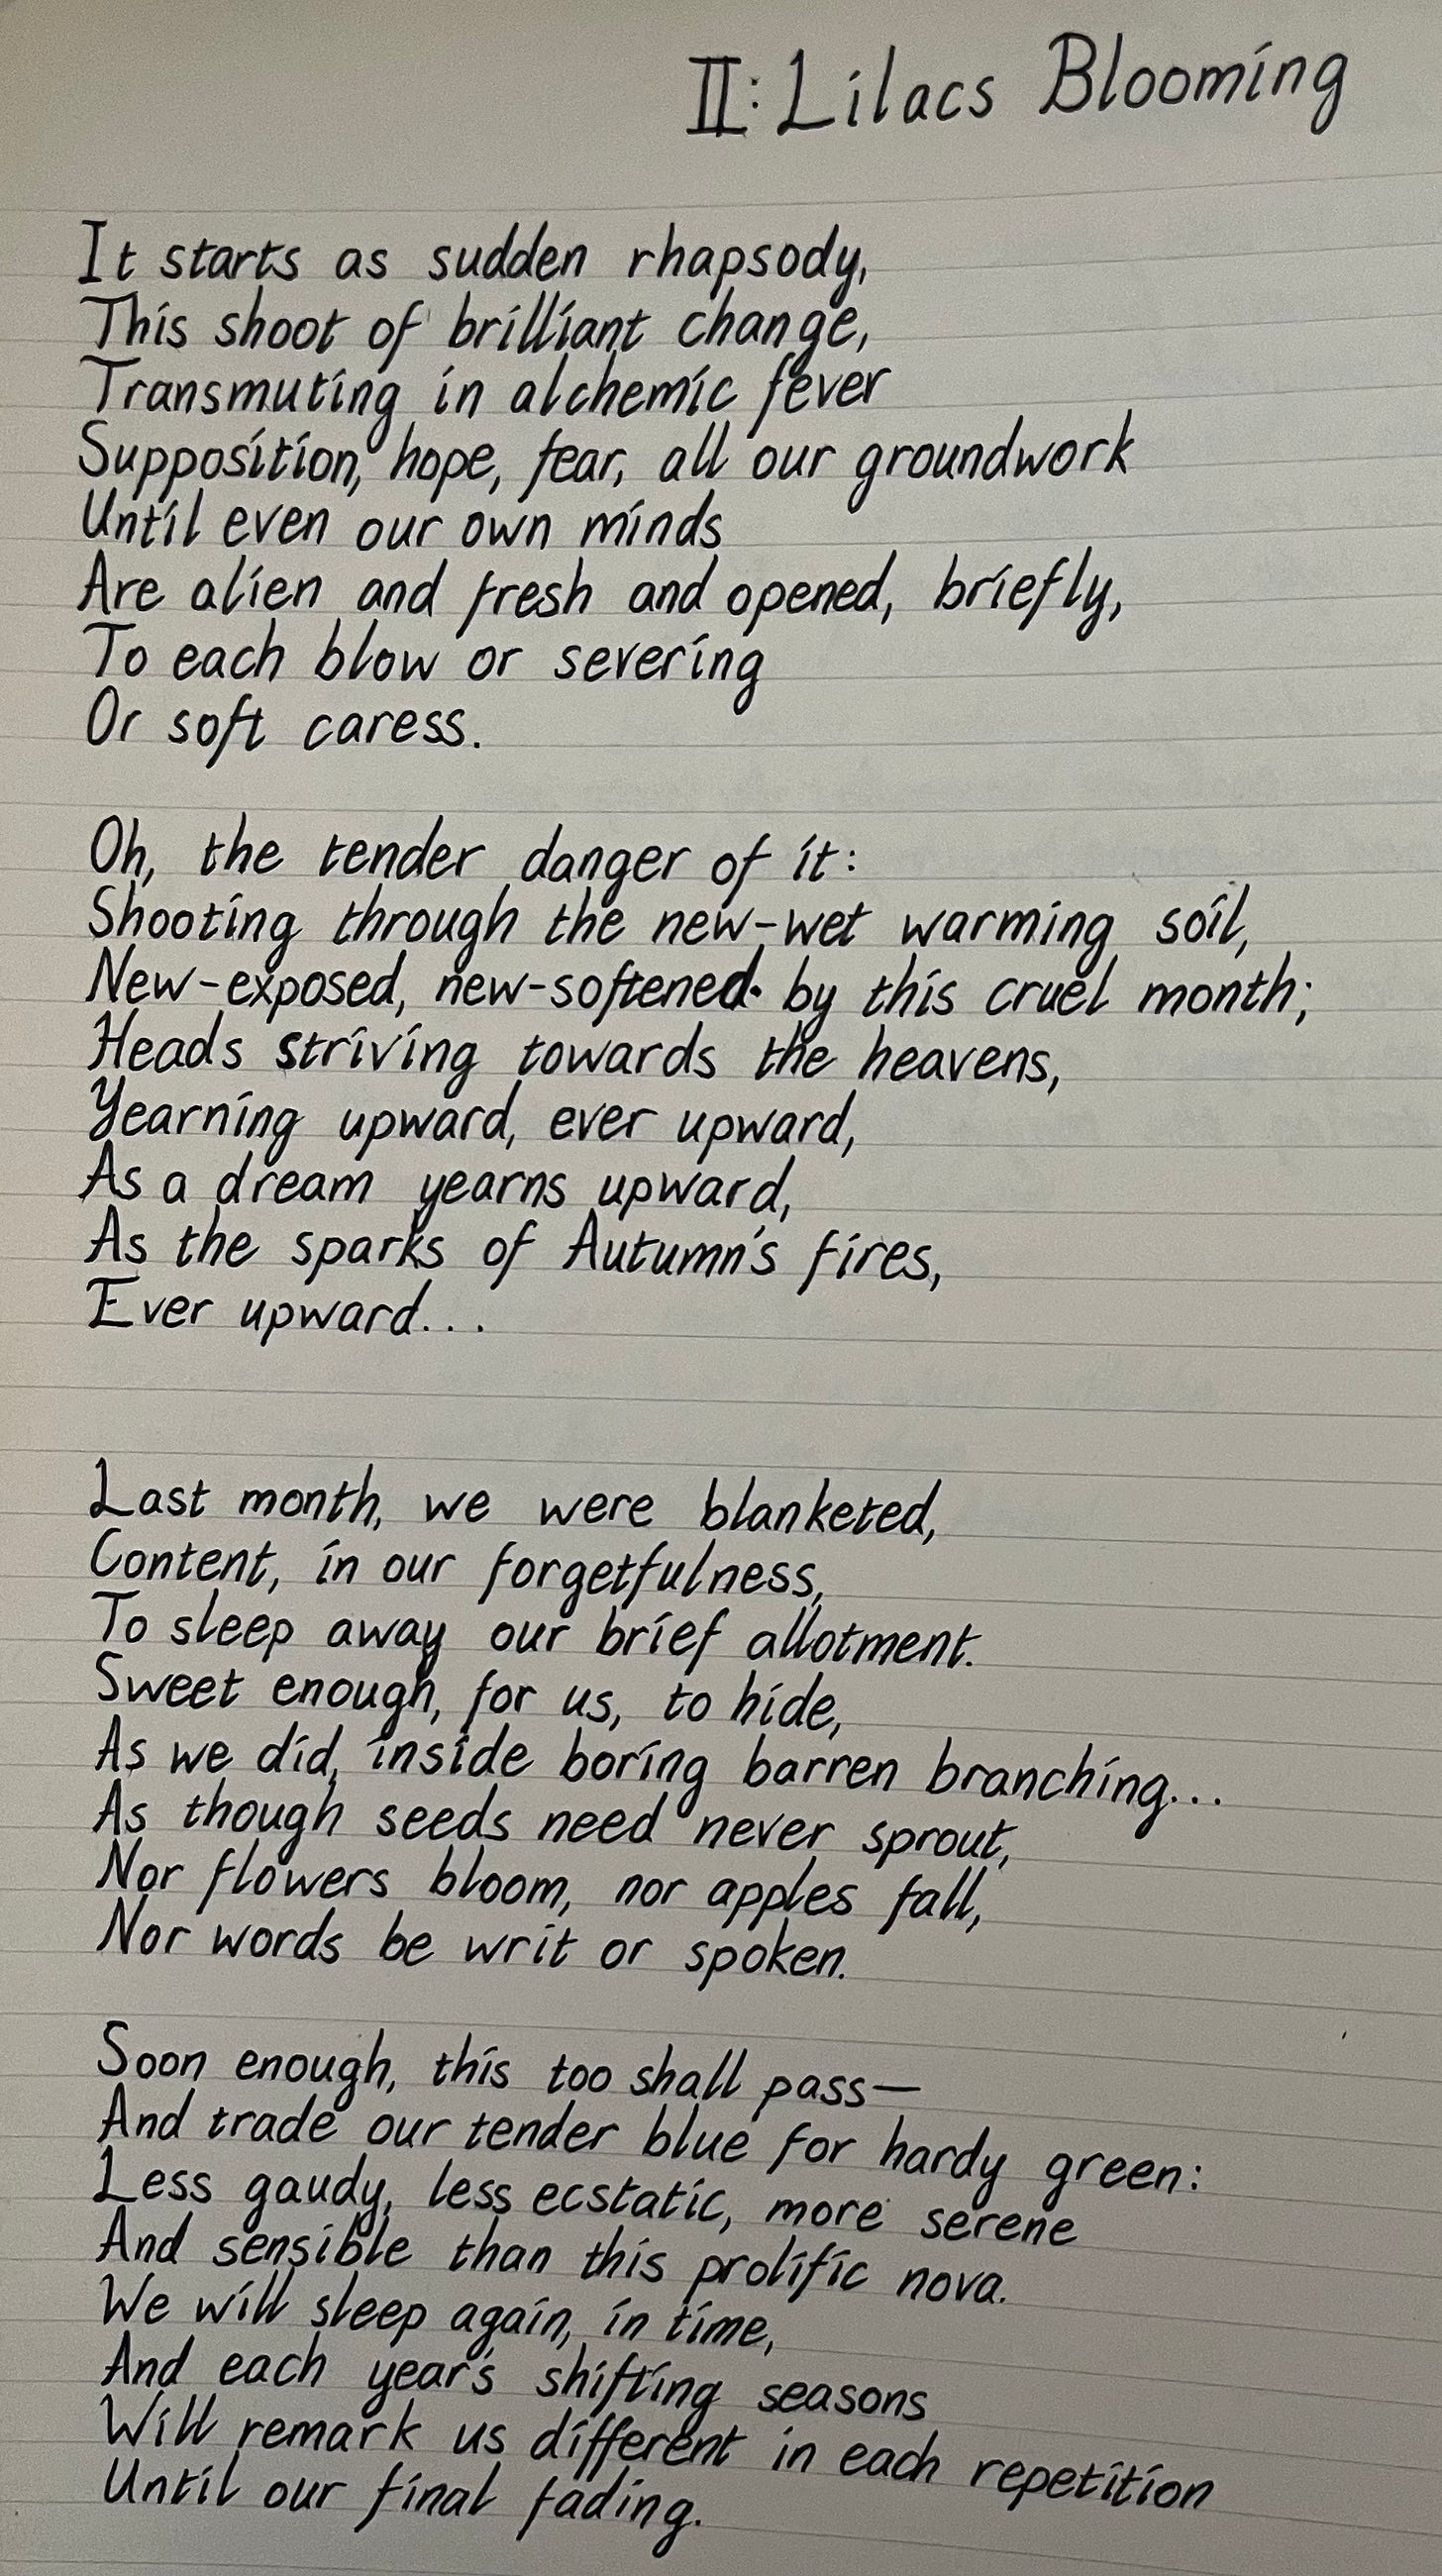 II: Lilacs Blooming
It starts as sudden rhapsody,
This shoot of brilliant change,
Transmuting in alchemic fever
Supposition, hope, fear, all our groundwork
Until even our own minds
Are alien and fresh and opened, briefly,
To each blow or severing
Or soft caress.
Oh, the tender danger of it:
Shooting through the new-wet warming soil,
New-exposed, new-softened by this cruel month;
Heads striving towards the heavens,
Yearning upward, ever upward,
As a dream yearns upward,
As the sparks of Autumn's fires,
Ever upward...
Last month, we were blanketed,
Content, in our forgetfulness,
To sleep away our brief allotment.
Sweet enough, for us, to hide,
As we did, inside boring barren branching...
As though seeds need never sprout,
Nor flowers bloom, nor apples fall,
Nor words be writ or spoken.
Soon enough, this too shall pass—
And trade our tender blue for hardy green:
Less gaudy, less ecstatic, more serene
And sensible than this prolific nova.
We will sleep again, in time,
And each year's shifting seasons
Will remark us different in each repetition
Until our final fading.